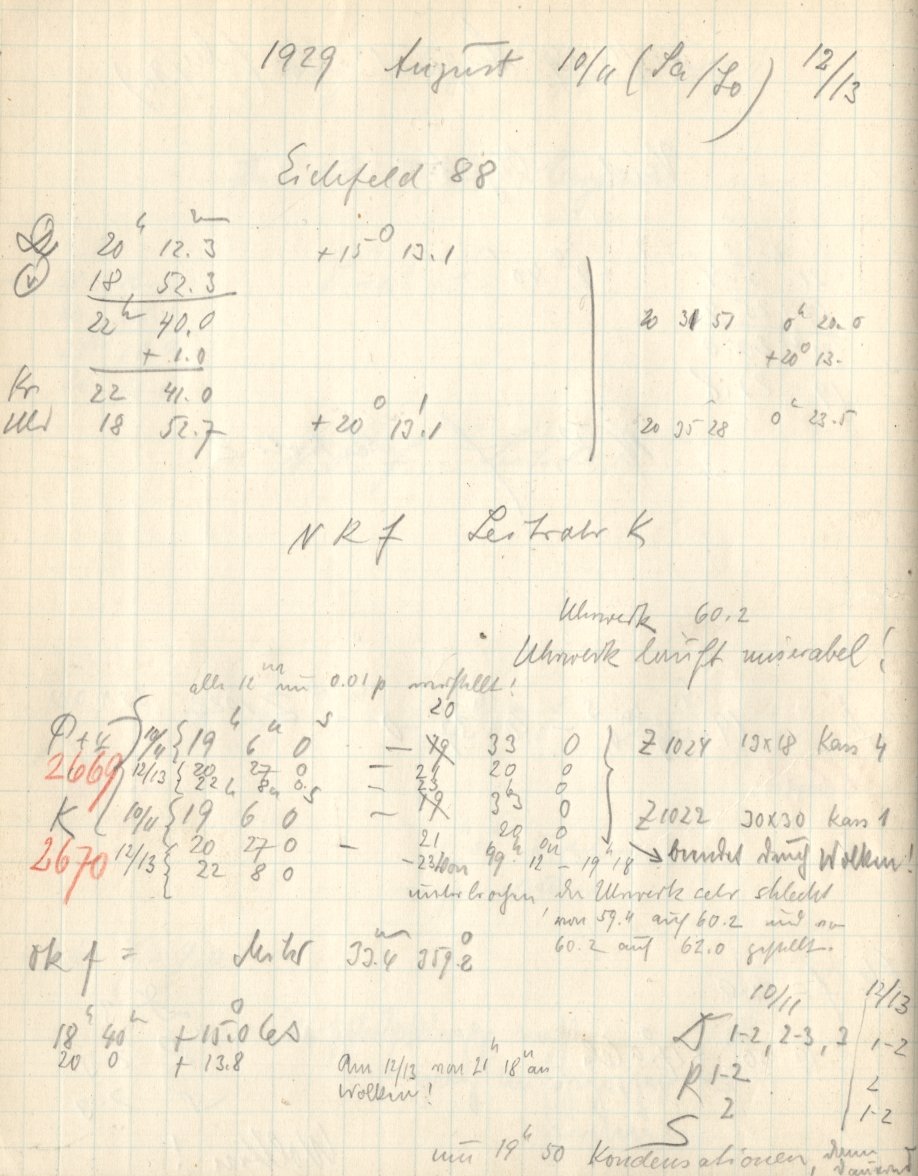 1929 August 10/11 (Sa/So) 12/13
Eichfeld 88
20 h 12.3 m +15° 13.1
18 52.3
22 h 40.0
+ 1.0
Kr 22 41.0
18 52.7 +20° 13.1'
20 31 51 0 h 20.0
+20° 13.
20 35 28 0 h 23.5
N K f Leitrohr K
Uhrwerk 60.2
Uhrwerk läuft miserabel!
alle 12 m um 0.01 p verstellt!
20
10/11 { 19 h 6 m 0 s — 33 0 Z 1024 13x18 Kass 4
2669 12/13 { 20 27 0 — 21 20 0
22 h 8 m 0 s — 23
K 10/11 { 19 6 0 — 33 0 Z 1022 30x30 Kass 1
2670 12/13 { 20 27 0 — 21 20 0
beendet durch Wolken!
22 8 0 — 23 von 19 h 12 – 19 h 18
unterbrochen, da Uhrwerk sehr schlecht
von 59.4 auf 60.2 und von
60.2 auf 62.0 gestellt.
ok f = 33.4 m 359.2°
10/11 12/13
18 h 40 m +15.0°
20 0 + 13.8
1-2, 2-3, 3 1-2
Am 12/13 von 21 h 18 m an
Wolken!
R 1-2 2
S 2 1-2
um 19 h 50 Kondensationen, dann
dauernd